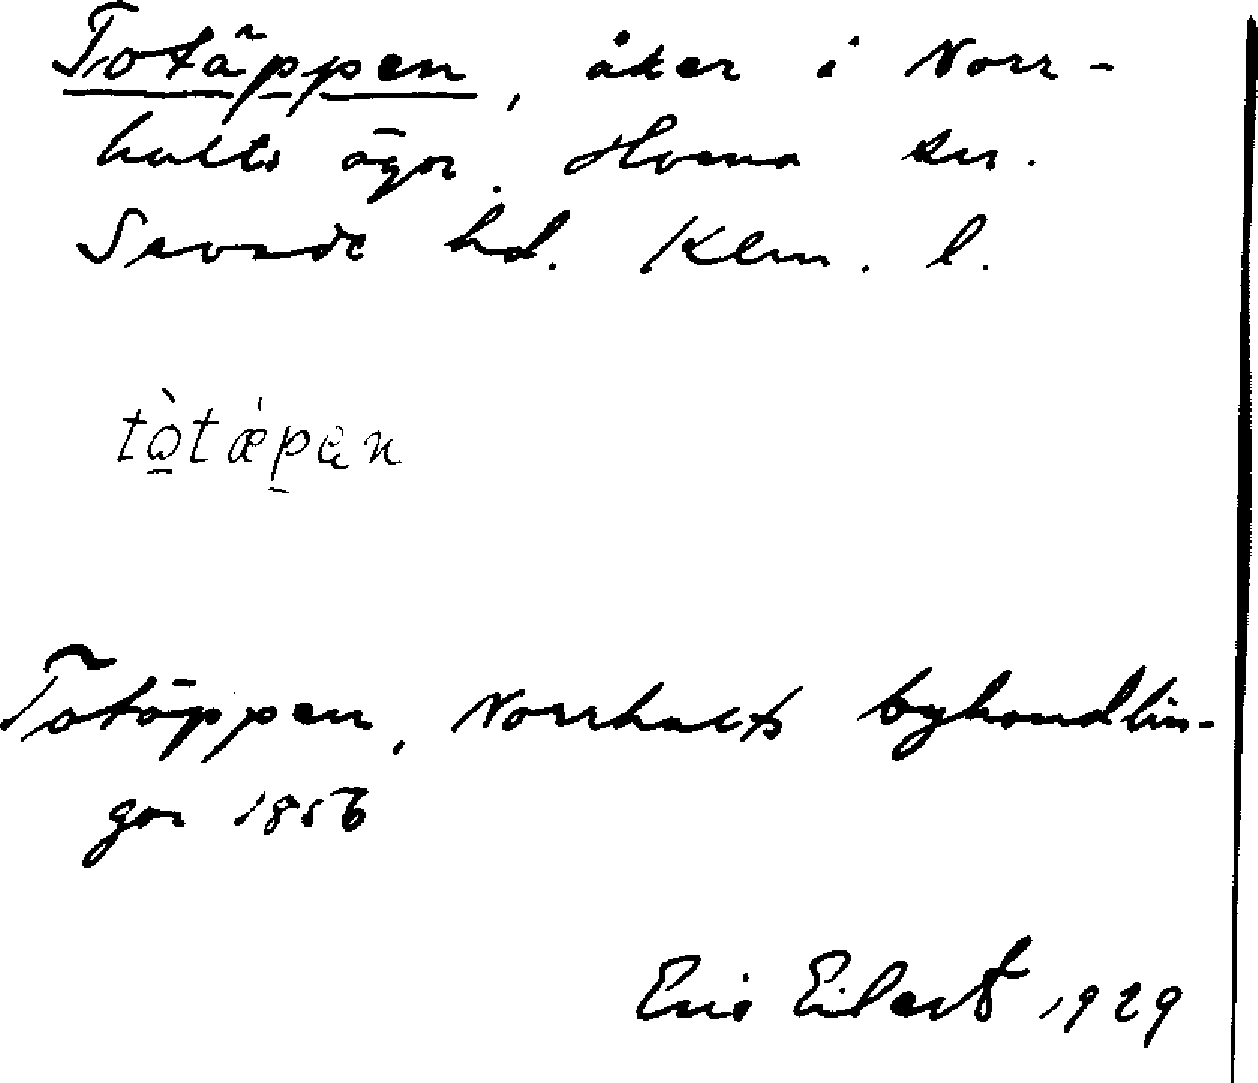 Totäppen, åker i Norr-
hults ägor. Horna sn.
Sevede hd. Klm. l.
tò̱tǽp̱ęn
Totäppen, Norrhults byhandlin-
gar 1856
Eric Eilert 1929